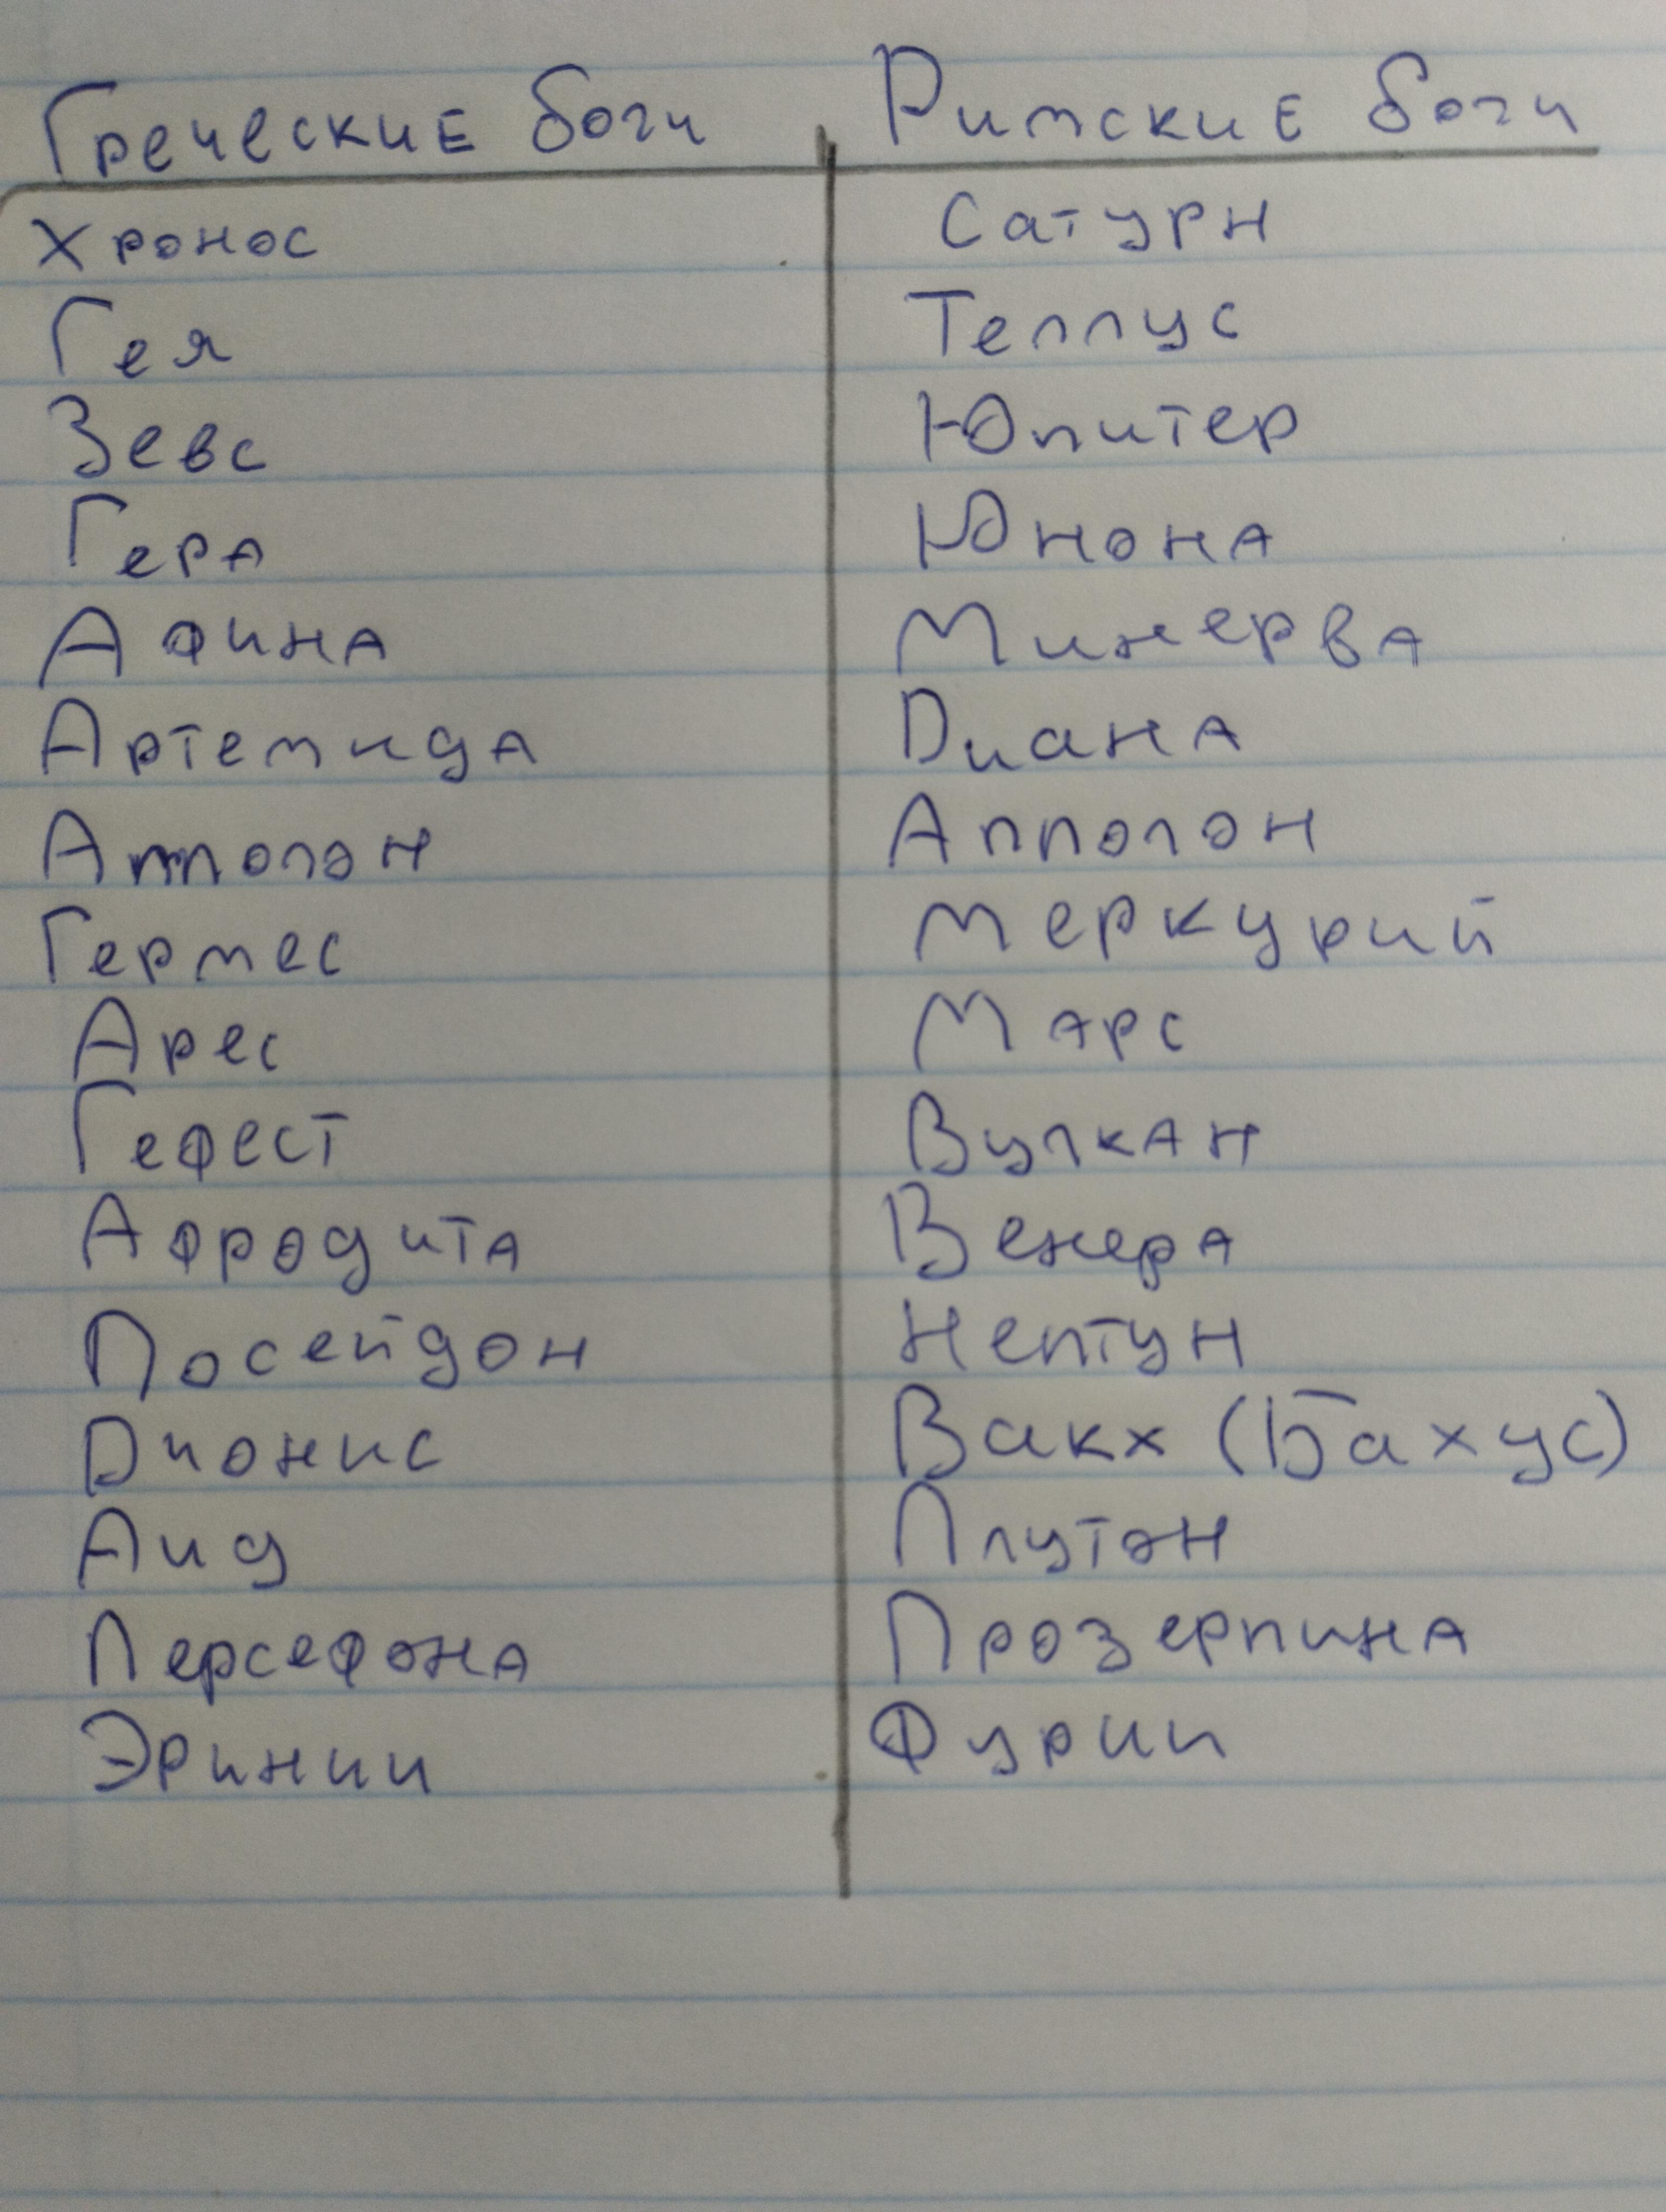 Греческие боги Римские боги
Хронос Сатурн
Гея Теллус
Зевс Юпитер
Гера Юнона
Афина Минерва
Артемида Диана
Апполон Апполон
Гермес Меркурий
Арес Марс
Гефест Вулкан
Афродита Венера
Посейдон Нептун
Дионис Вакх (Бахус)
Аид Плутон
Персефона Прозерпина
Эринии Фурии